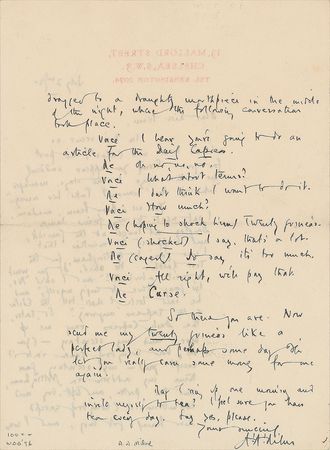 13, MALLORD STREET,
CHELSEA, S.W.3.
TEL. KENSINGTON 2074.
dragged to a draughty mouthpiece in the middle
of the night, where the following conversation
took place.
Voice I hear you're going to do an
article for the Daily Express.
Me Oh no, no, no.
Voice What about terms?
Me I don't think I want to do it.
Voice How much?
Me (hoping to shock him) Twenty guineas.
Voice (shocked) I say, that's a lot.
Me (eagerly) I say, it's too much.
Voice All right, we'll pay that
Me Curse.
So there you are. Now
send me my twenty guineas like a
perfect lady, and perhaps some day I'll
let you really earn some money for me
again.
May I ring up one morning and
invite myself to tea? I feel sure you have
tea every day. Say yes, please.
Yours
A. A. Milne
A. A. Milne